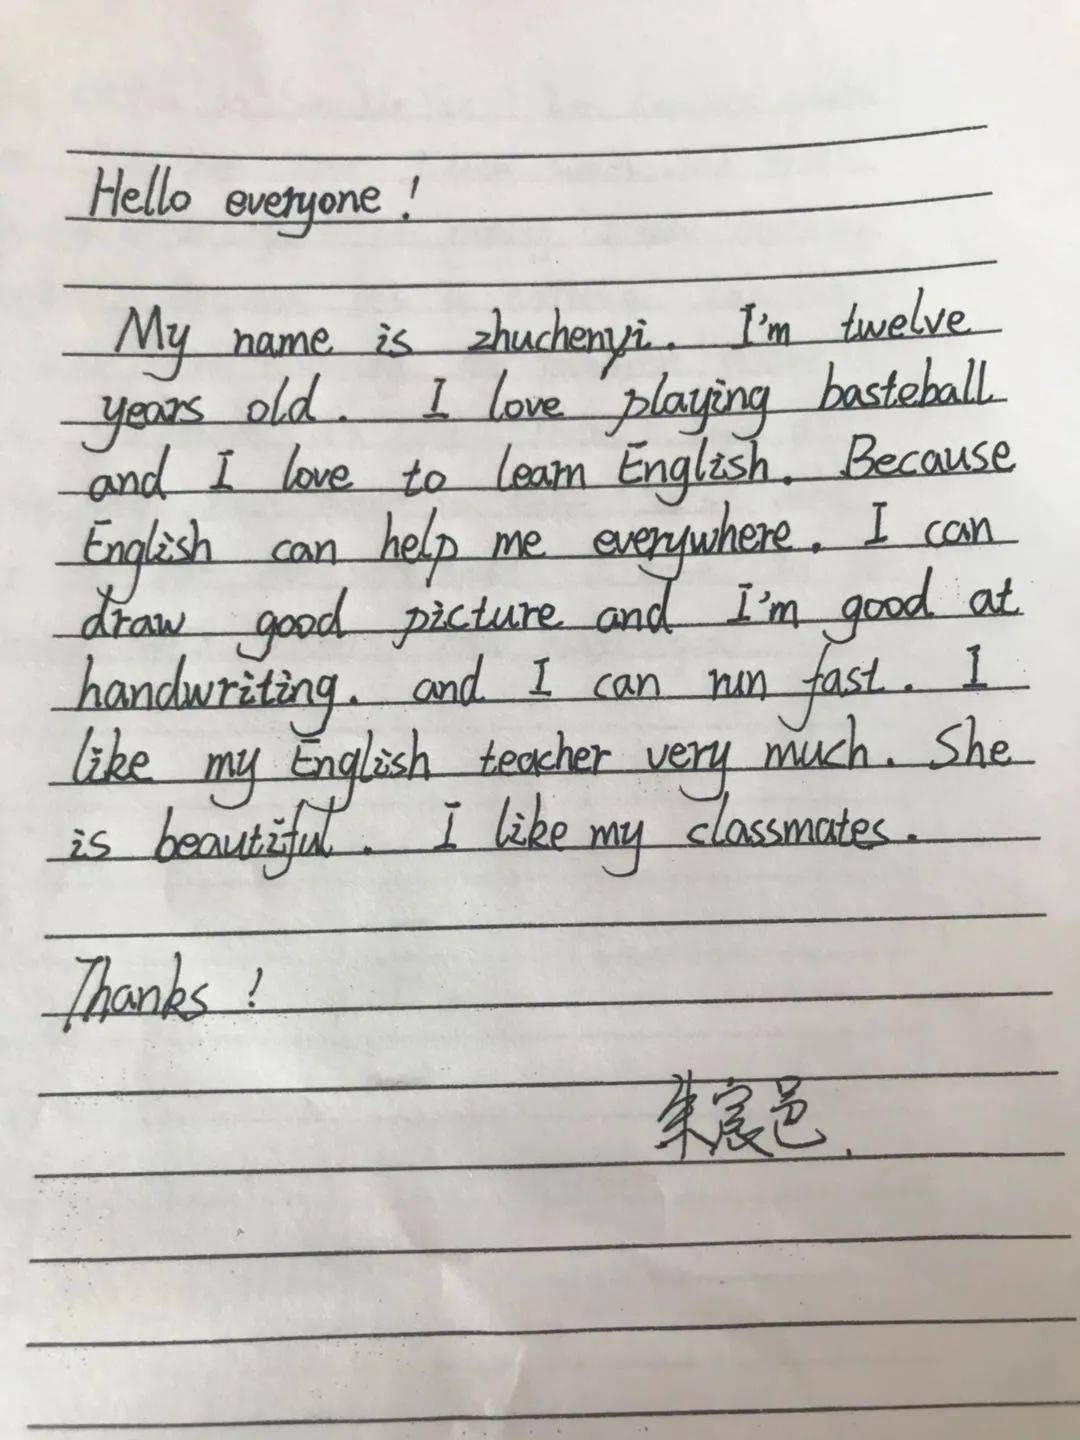 Hello everyone!
My name is zhuchenyi. I'm twelve
years old. I love playing basteball
and I love to learn English. Because
English can help me everywhere. I can
draw good picture and I'm good at
handwriting. and I can run fast. I
like my English teacher very much. She
is beautiful. I like my classmates.
Thanks!
朱宸邑.